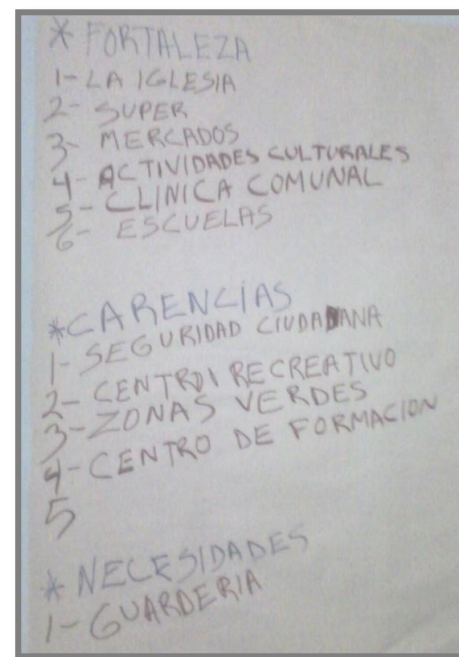 * FORTALEZA
1- LA IGLESIA
2- SUPER
3- MERCADOS
4- ACTIVIDADES CULTURALES
5- CLINICA COMUNAL
6- ESCUELAS
* CARENCIAS
1- SEGURIDAD CIUDADANA
2- CENTRO RECREATIVO
3- ZONAS VERDES
4- CENTRO DE FORMACION
5
* NECESIDADES
1- GUARDERIA